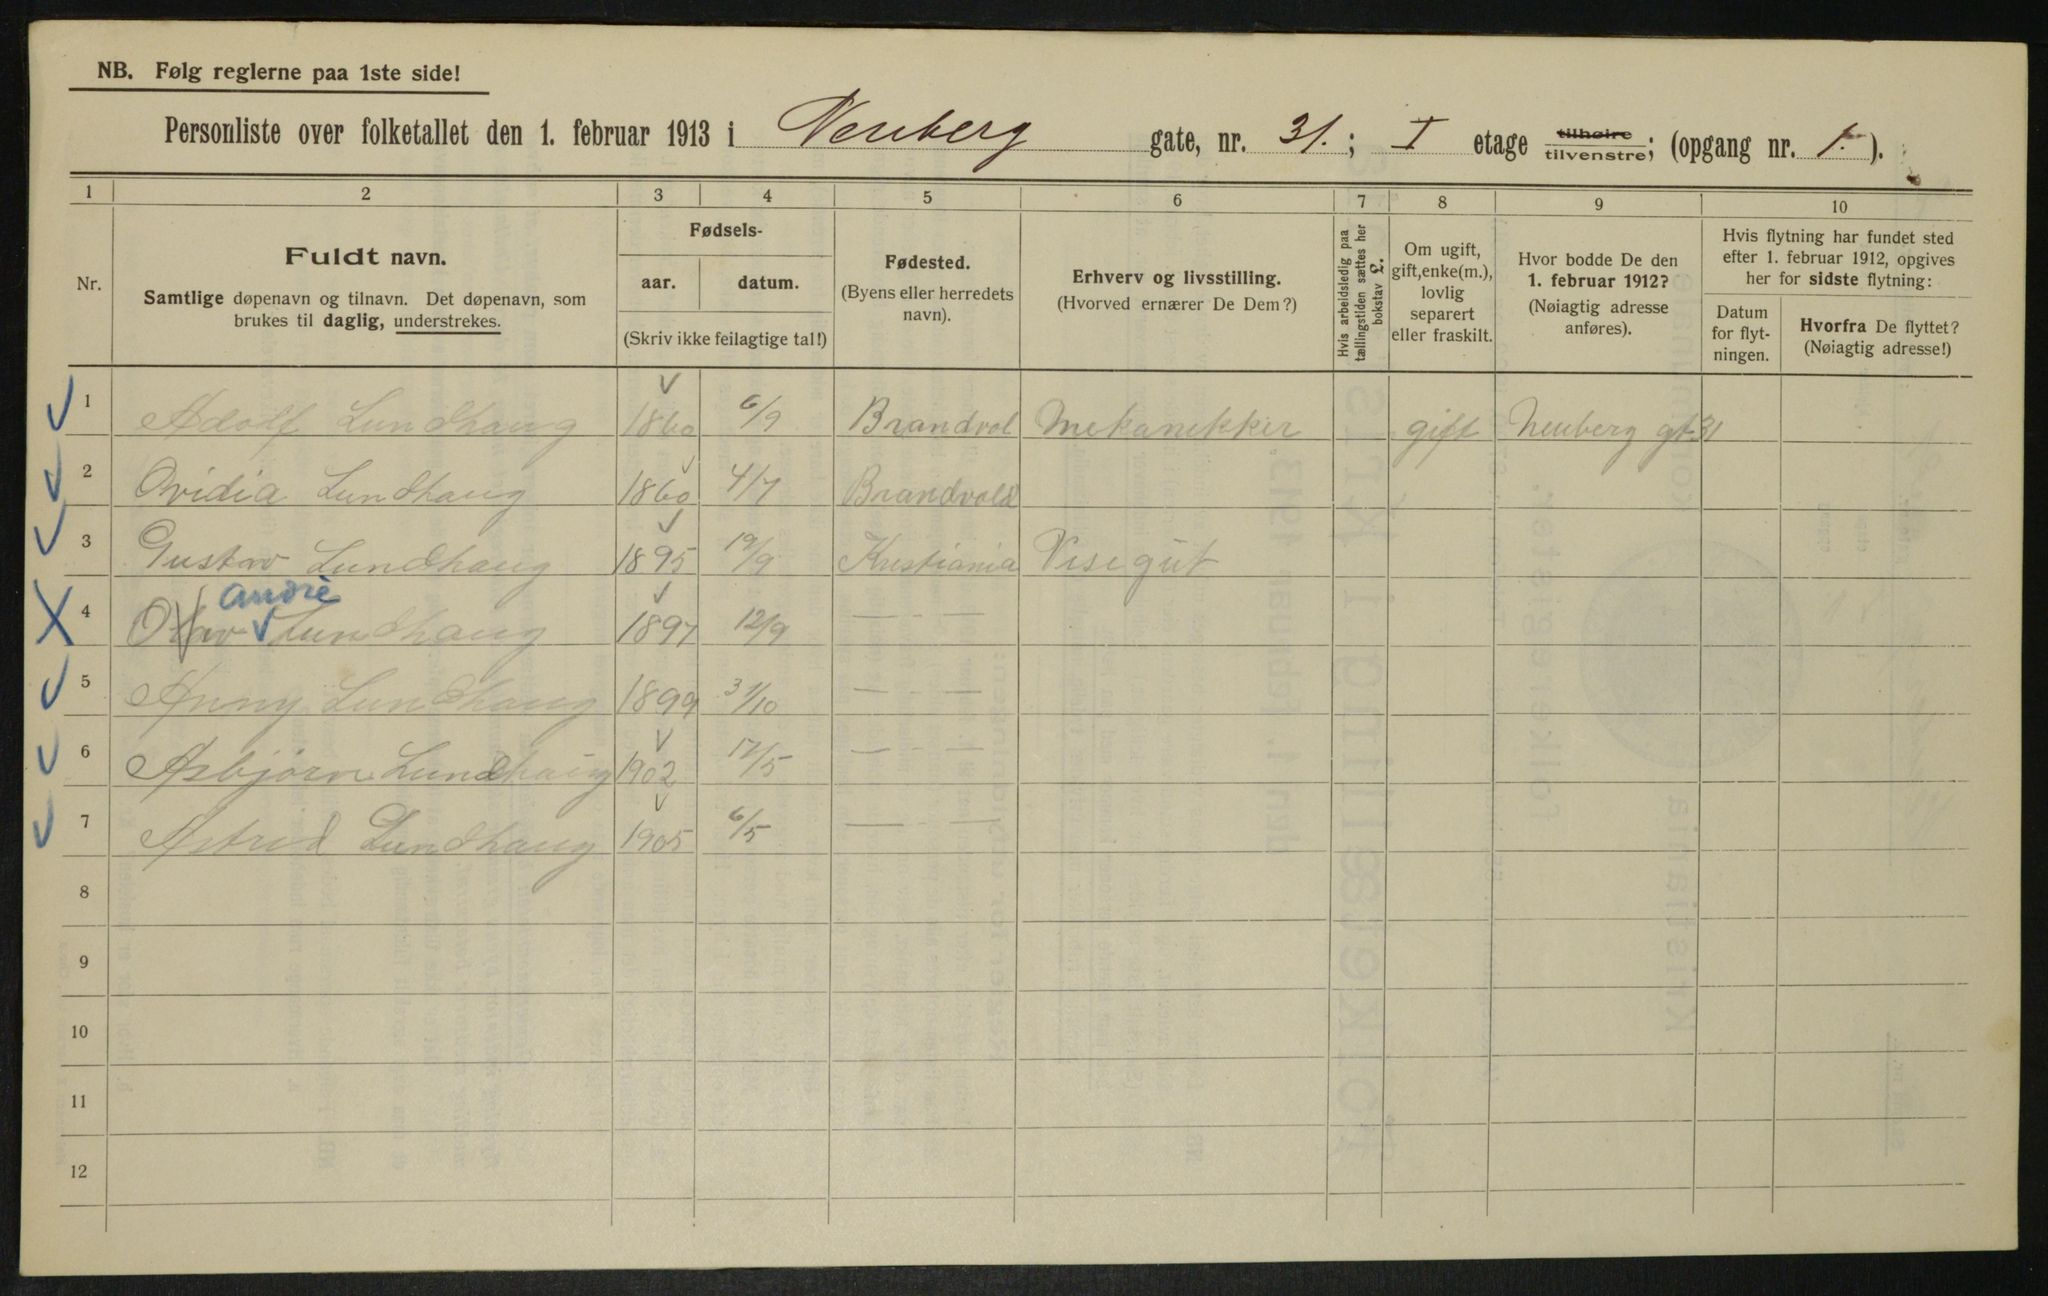 NB. Følg reglerne paa 1ste side!
Personliste over folketallet den 1. februar 1913 i Neuberg gate, nr. 31.; I etage tilhøire tilvenstre; (opgang nr. 1.).
1 2 3 4 5 6 7 8 9 10
Nr.
Fuldt navn.
Samtlige døpenavn og tilnavn. Det døpenavn, som
brukes til daglig, understrekes.
Fødsels-
aar. datum.
(Skriv ikke feilagtige tal!)
Fødested.
(Byens eller herredets
navn).
Erhverv og livsstilling.
(Hvorved ernærer De Dem?)
Hvis arbeidsledig paa
tællingstiden sættes her
bokstav L.
Om ugift,
gift, enke(m.),
lovlig
separert
eller fraskilt.
Hvor bodde De den
1. februar 1912?
(Nøiagtig adresse
anføres).
Hvis flytning har fundet sted
efter 1. februar 1912, opgives
her for sidste flytning:
Datum
for flyt-
ningen.
Hvorfra De flyttet?
(Nøiagtig adresse!)
1 Adolf Lundhaug 1860 6/9 Brandvol Mekanekker gift Neuberg gt 31
2 Ovidia Lundhaug 1860 4/7 Brandvold
3 Gustav Lundhaug 1895 19/9 Kristiania Visegut
André
4 Lundhaug 1897 12/9 — —
5 Anny Lundhaug 1899 31/10 — —
6 Asbjørn Lundhaug 1902 17/5 — —
7 Astrid Lundhaug 1905 6/5 — —
8
9
10
11
12